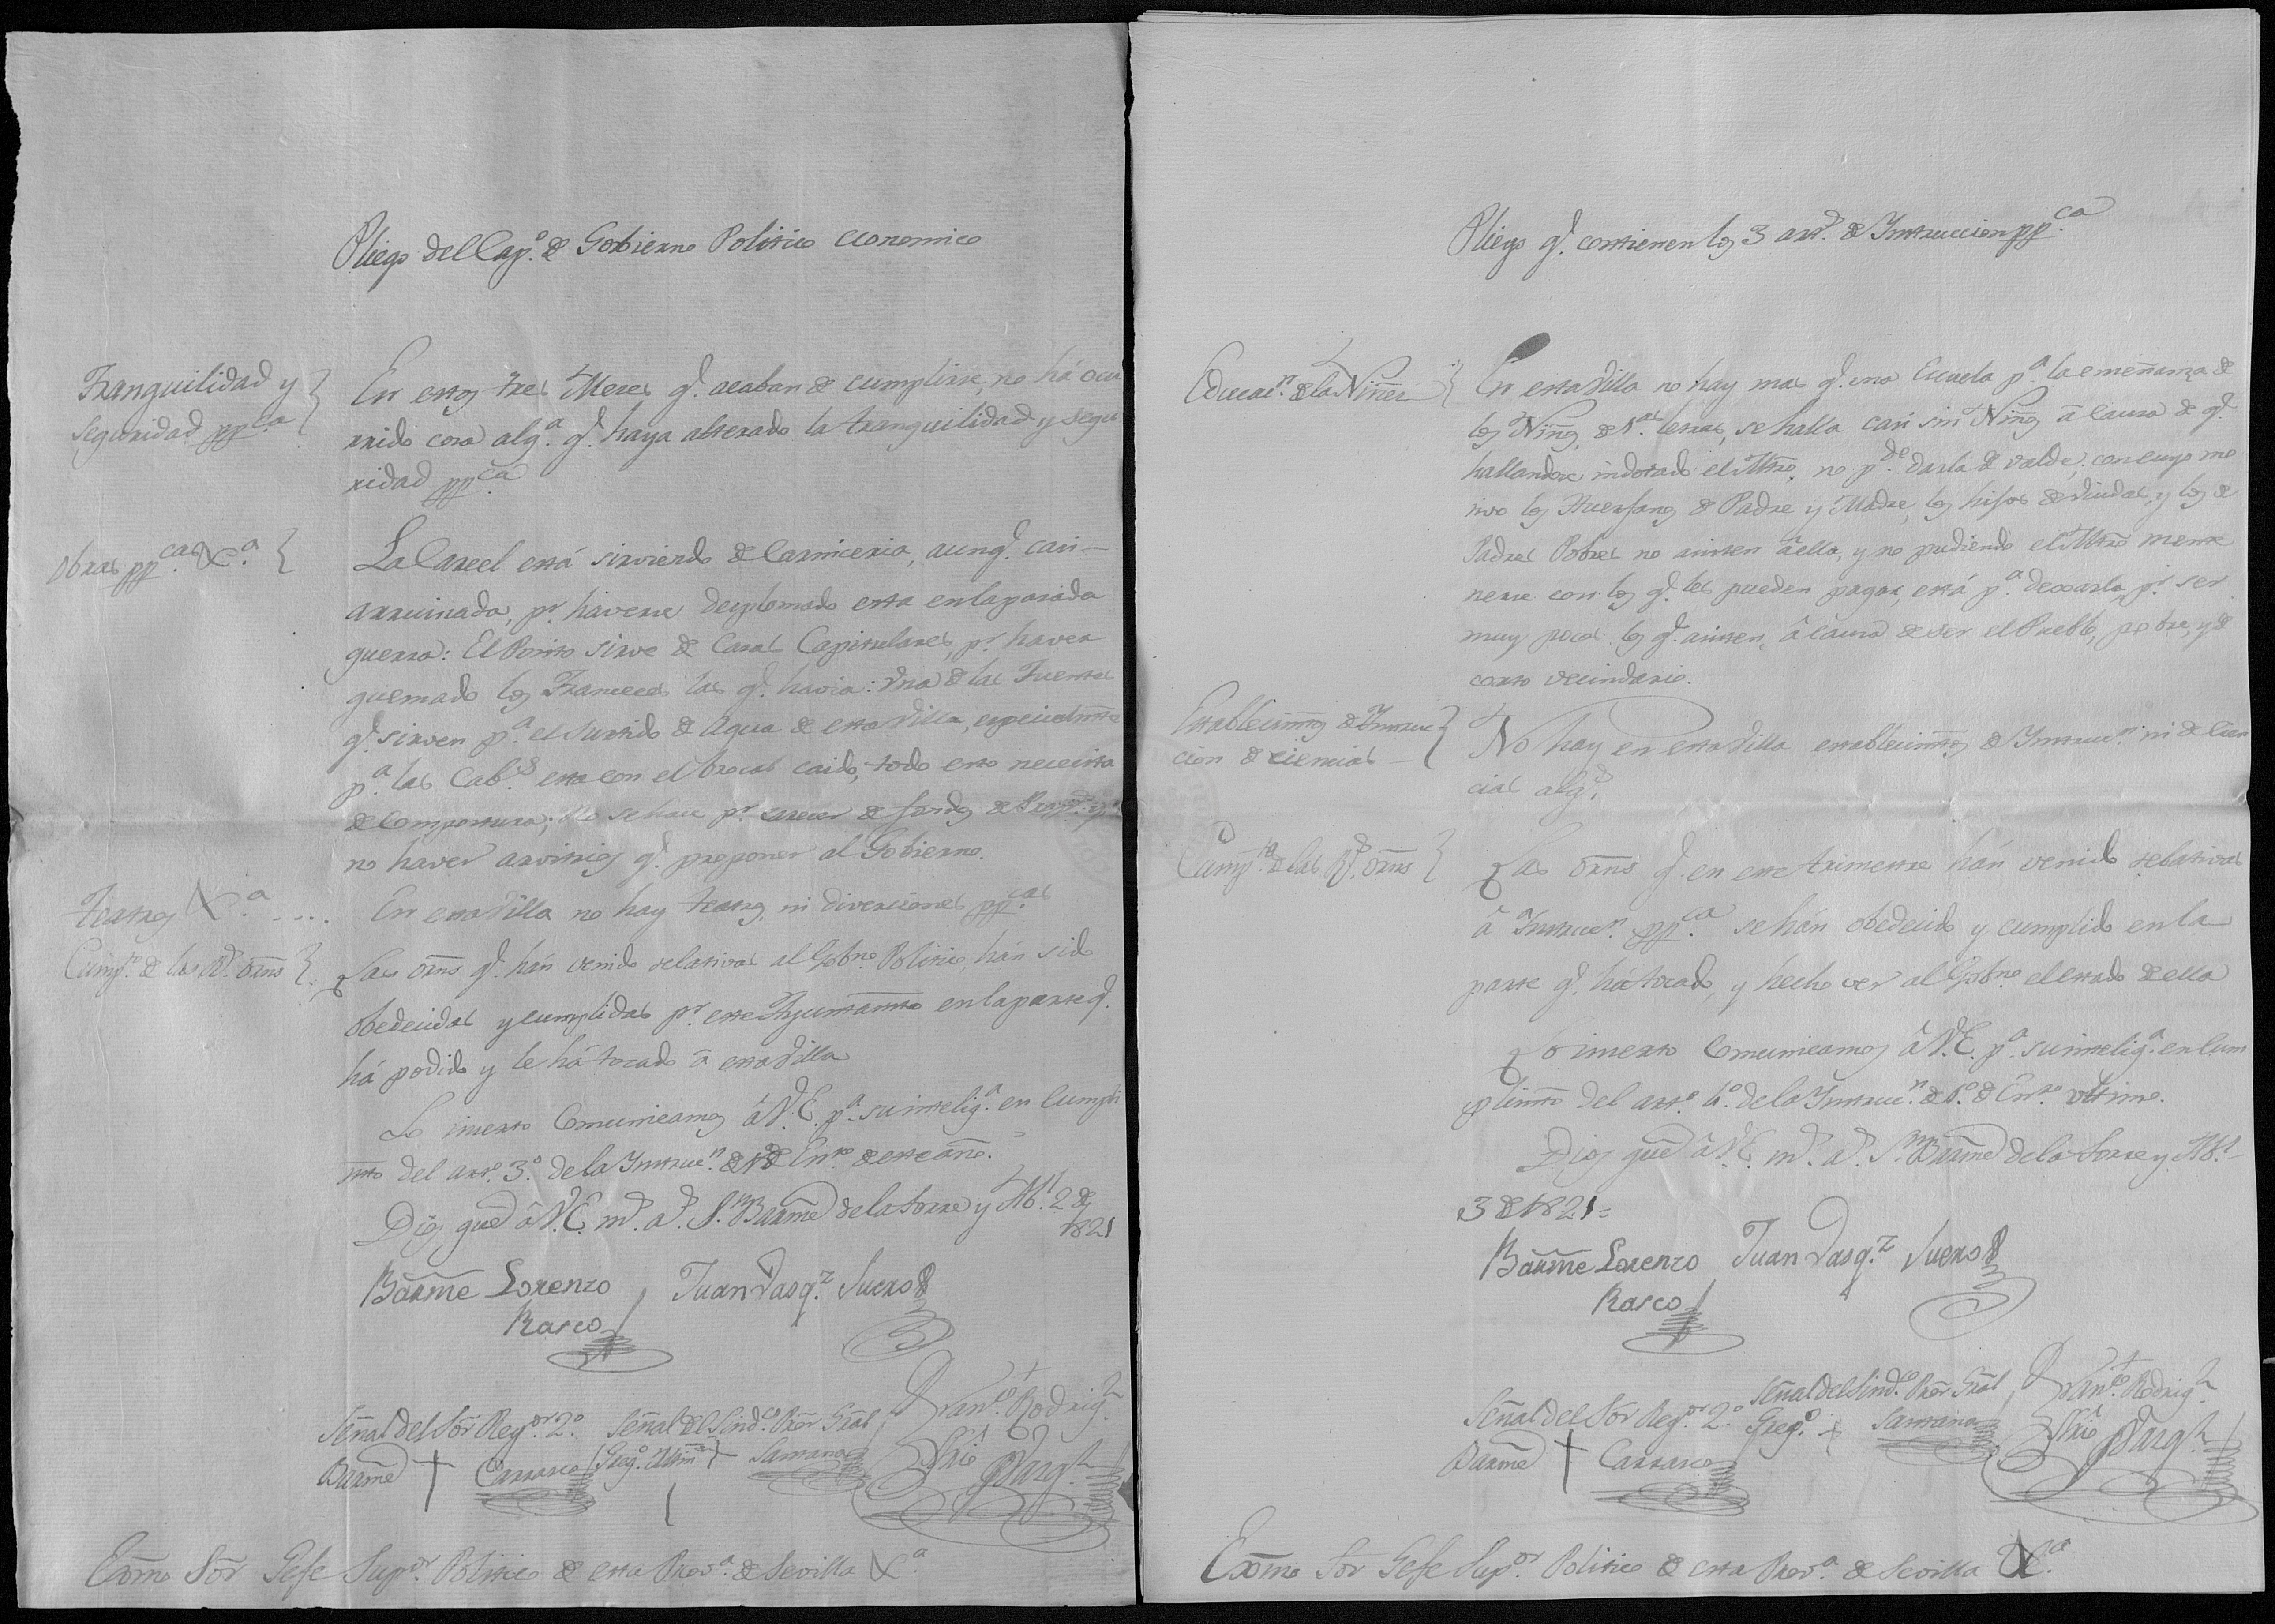 Pliego del Cap.º de Gobierno Politico economico
Tranquilidad y
seguridad pp.ca
En estos tres Meses q.e acaban de cumplirse, no há ocu
rrido cosa alg.a q.e haya alterado la tranquilidad y segu
ridad pp.ca
Obras pp.cas &.a
La Carcel está sirviendo de Carniceria, aunq.e casi
arruinada, p.r haverse desplomado esta en la pasada
guerra: El Posito sirve de Casas Capitulares, p.r haver
quemado los Franceses las q.e havia: Una de las Fuentes
q.e sirven p.a el surtido de Agua de esta Villa, especialmte
p.a las Cab.s esta con el brocal caido, todo esto necesita
de compostura; No se hace p.r carecer de fondos de Prop.s y
no haver arvitrios q.e proponer al Gobierno.
Teatros &.a ....
En esta Villa no hay teatros, ni diverciones pp.cas
Cump.to de las Rs. orns
Las orns q.e hán venido relativas al Gob.no Politico, hán sido
obedecidas y cumplidas p.r este Ayuntamto en la parte q.e
há podido y le há tocado á esta Villa
Lo inserto Comunicamos á V.E. p.a su intelig.a en Cumpli
mto del art.o 3.º de la Instruc.n de 1.º de En.ro de este año.
Dios gue á V.E. m.s a.s S.n Barme de la Torre y Ab.l 2 de
1821
Barme Lorenzo Juan Vasq.z Suero
Rasco
Señal del Sor Reg.or 2.º Señal del Sind.co Pror Gral Fran.co Rodrig.z
Barme + Carrasco Greg.o + Santana Srio
Exmo Sor Gefe Sup.or Politico de esta Prov.a de Sevilla &.a
Pliego q.e contienen los 3 art.s de Instruccion pp.ca
Educac.n de la Niñes
En esta Villa no hay mas q.e una Escuela p.a la enseñanza de
los Niños, de 1.as letras, se halla casi sin Niños á causa de q.e
hallandose indotado el Mtro, no p.de darla de valde; con cuyo mo
tivo los Huerfanos de Padre y Madre, los hijos de Viudas, y los de
Padres Pobres no asisten á ella, y no pudiendo el Mtro mante
nerse con los q.e les pueden pagar, está p.a dexarla, p.r ser
muy pocos los q.e asisten, á causa de ser el Pueblo, pobre, y de
corto vecindario.
Establecimtos de Instruc
cion de ciencias
No hay en esta Villa establecimtos de Instruc.n ni de Cien
cias alg.s
Cump.to de las Rs. orns
Las orns q.e en este trimestre hán venido relativas
á Instruc.n pp.ca se hán obedecido y cumplido en la
parte q.e há tocado, y hecho ver al Gob.no el estado de ella
Lo inserto Comunicamos á V.E. p.a su intelig.a en Cum
plimto del art.o 4.º de la Instruc.n de 1.º de En.ro ultimo.
Dios gue á V.E. m.s a.s S.n Barme de la Torre y Ab.l
3 de 1821=
Barme Lorenzo Juan Vasq.z Suero
Rasco
Señal del Sor Reg.or 2.º Señal del Sind.co Pror Gral Fran.co Rodrig.z
Barme + Carrasco Greg.o + Santana Srio
Exmo Sor Gefe Sup.or Politico de esta Prov.a de Sevilla &.a